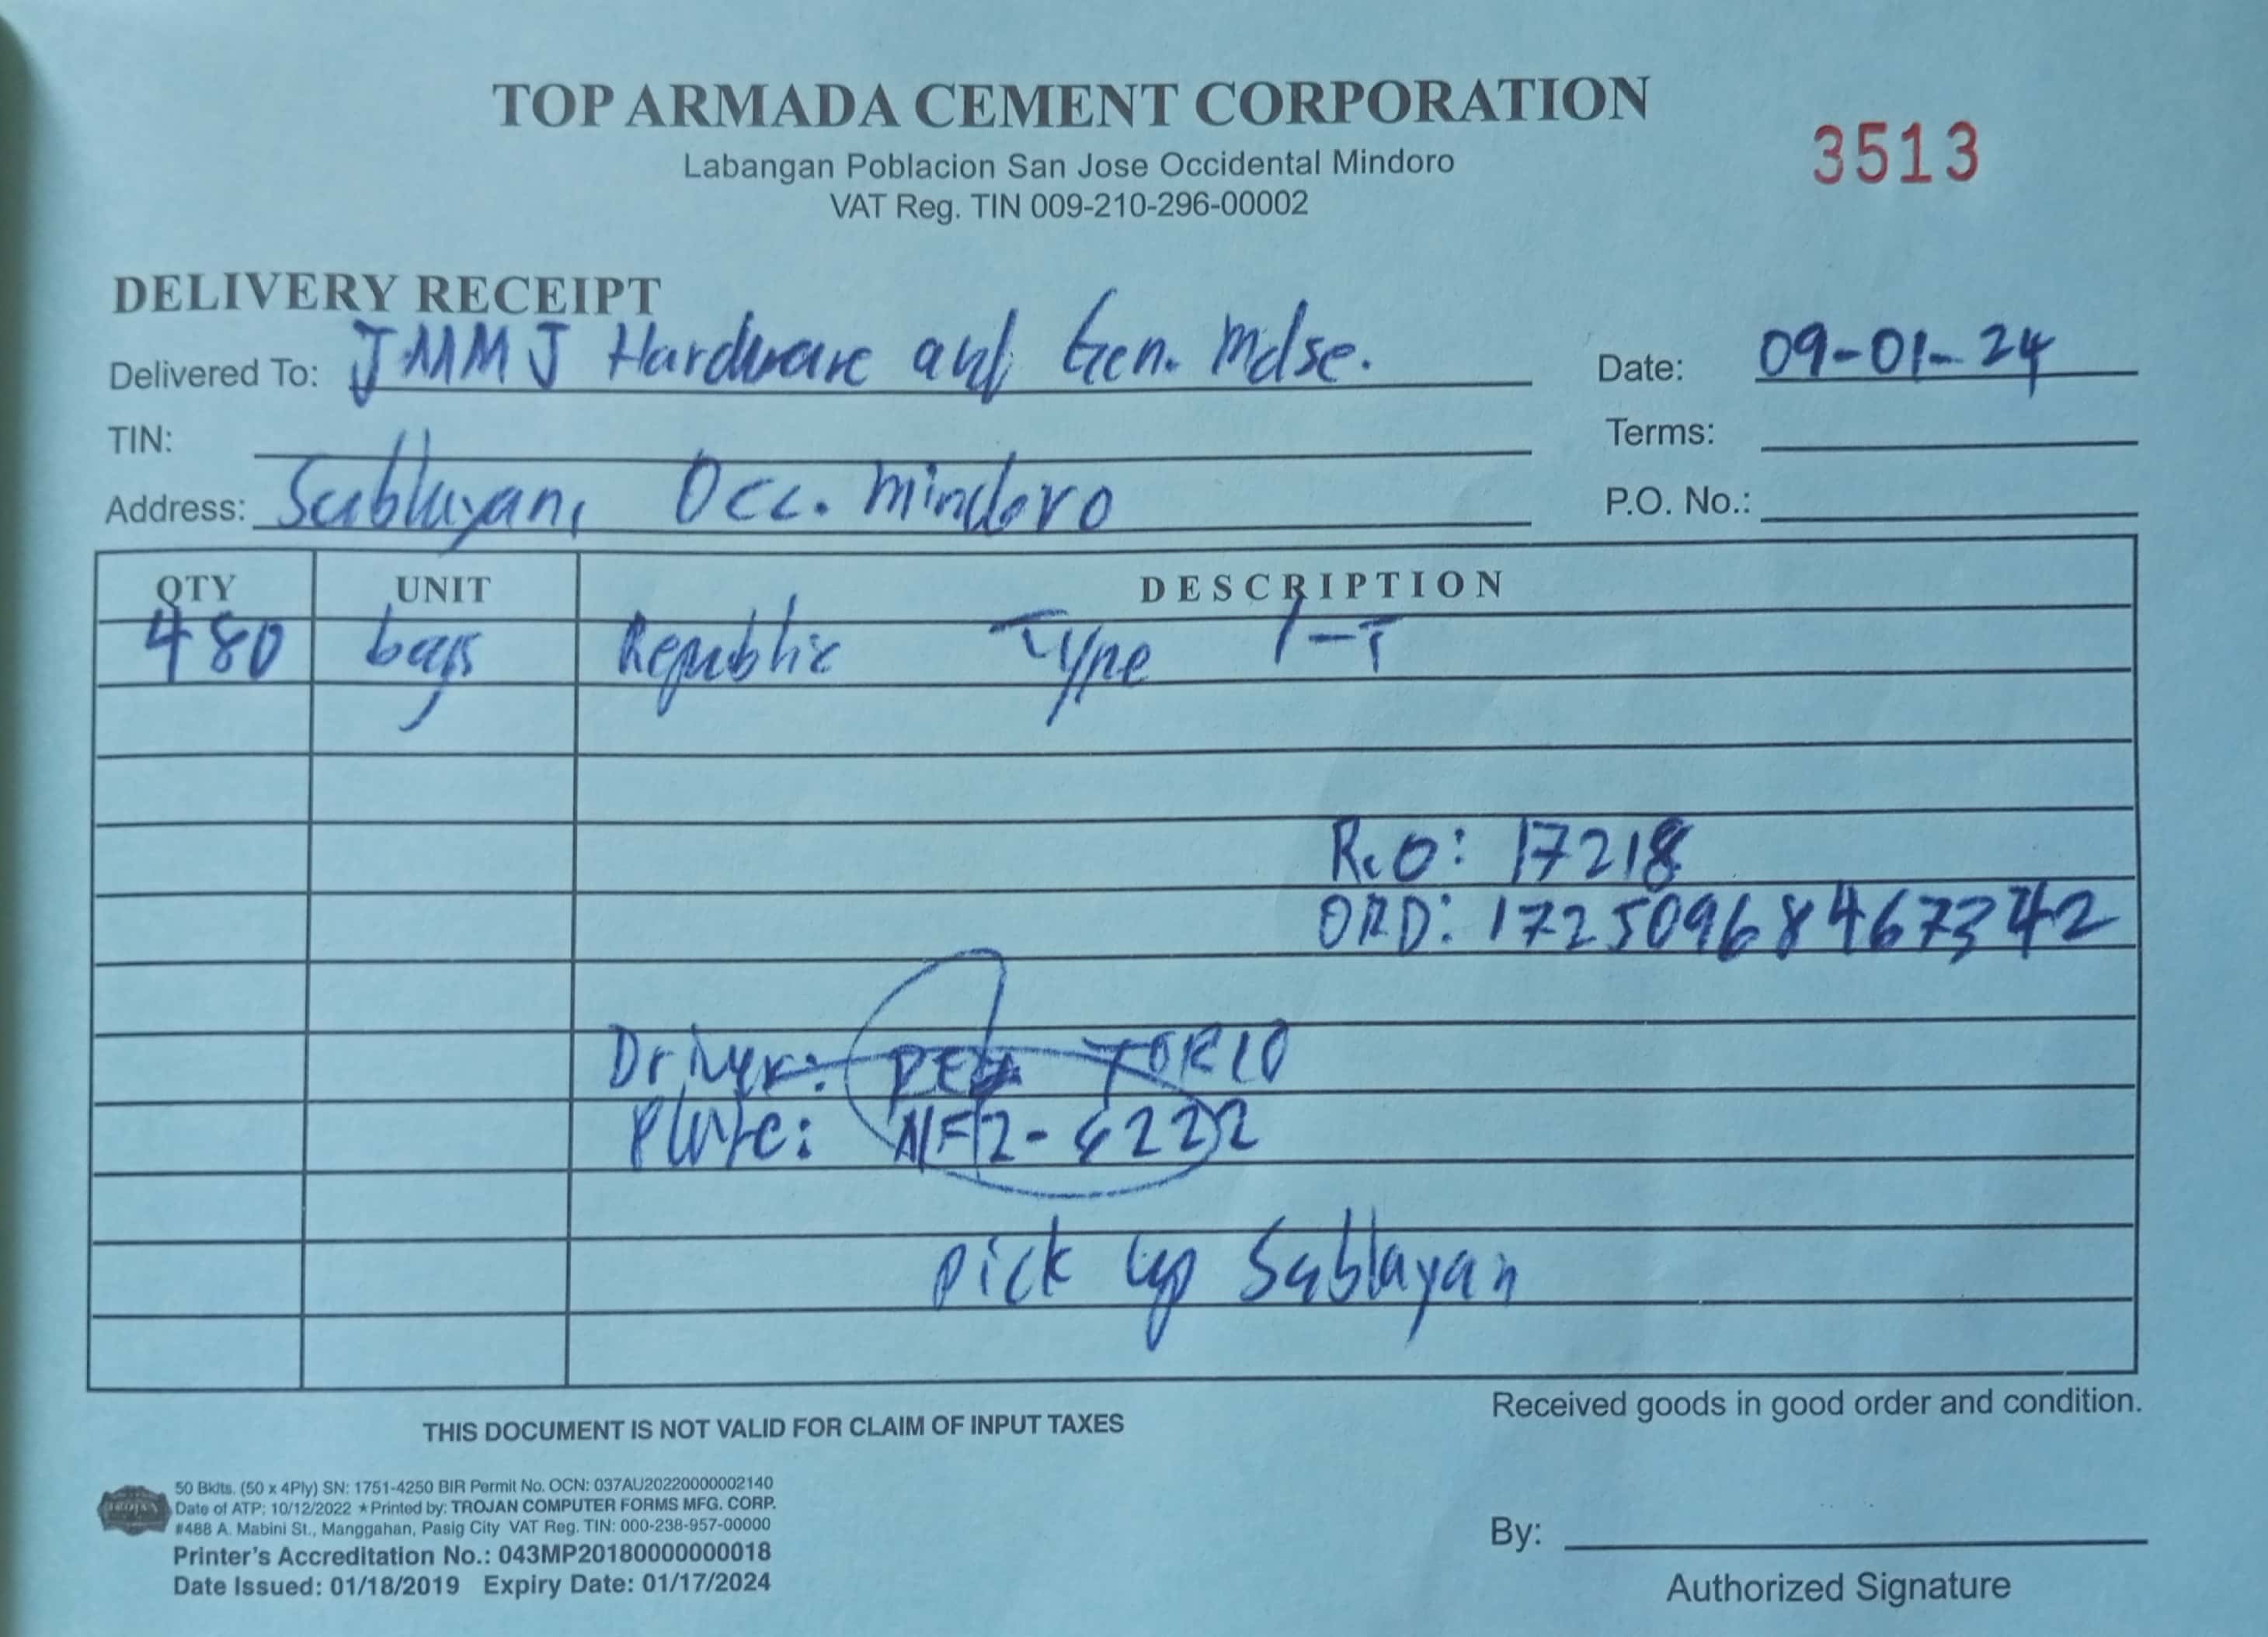 TOP ARMADA CEMENT CORPORATION
Labangan Poblacion San Jose Occidental Mindoro
VAT Reg. TIN 009-210-296-00002
3513
DELIVERY RECEIPT
Delivered To: JMMJ Hardware and Gen. Mdse.
Date: 09-01-24
TIN:
Terms:
Address: Sablayan, Occ. Mindoro
P.O. No.:
QTY UNIT DESCRIPTION
480 bags Republic Type 1-T
R.O: 17218
ORD: 1725096846 7342
Driver: TORIO
Plate:
pick up Sablayan
THIS DOCUMENT IS NOT VALID FOR CLAIM OF INPUT TAXES
Received goods in good order and condition.
50 Bklts. (50 x 4Ply) SN: 1751-4250 BIR Permit No. OCN: 037AU20220000002140
Date of ATP: 10/12/2022 ★ Printed by: TROJAN COMPUTER FORMS MFG. CORP.
#488 A. Mabini St., Manggahan, Pasig City VAT Reg. TIN: 000-238-957-00000
Printer's Accreditation No.: 043MP20180000000018
Date Issued: 01/18/2019 Expiry Date: 01/17/2024
By:
Authorized Signature